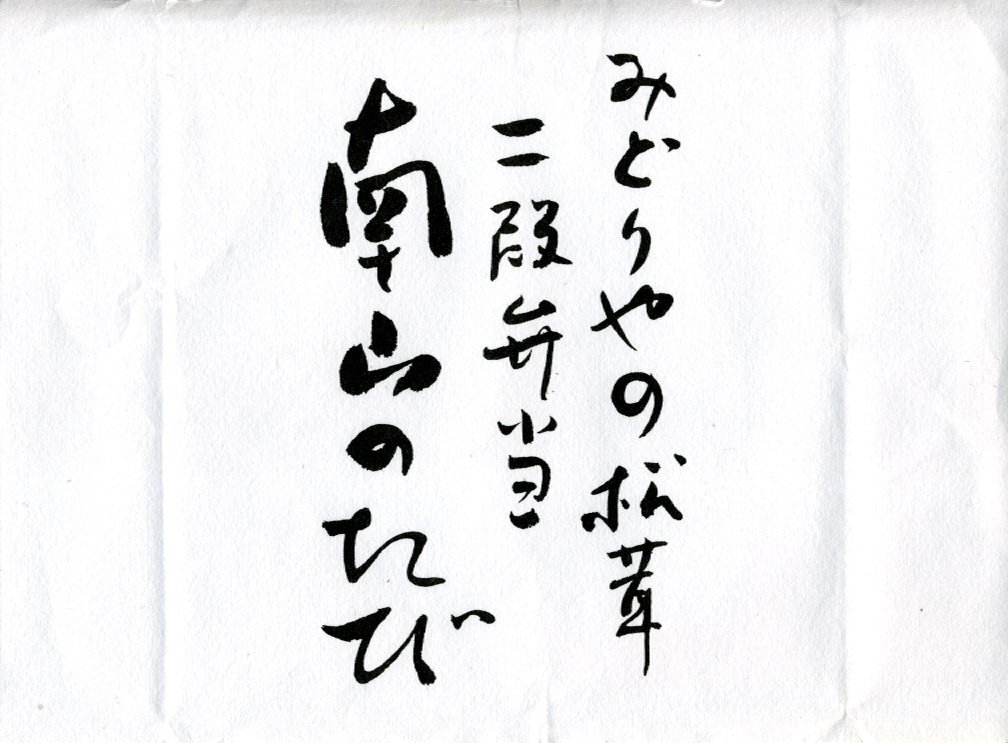 みどりやの松茸
二段弁当
南山のたび